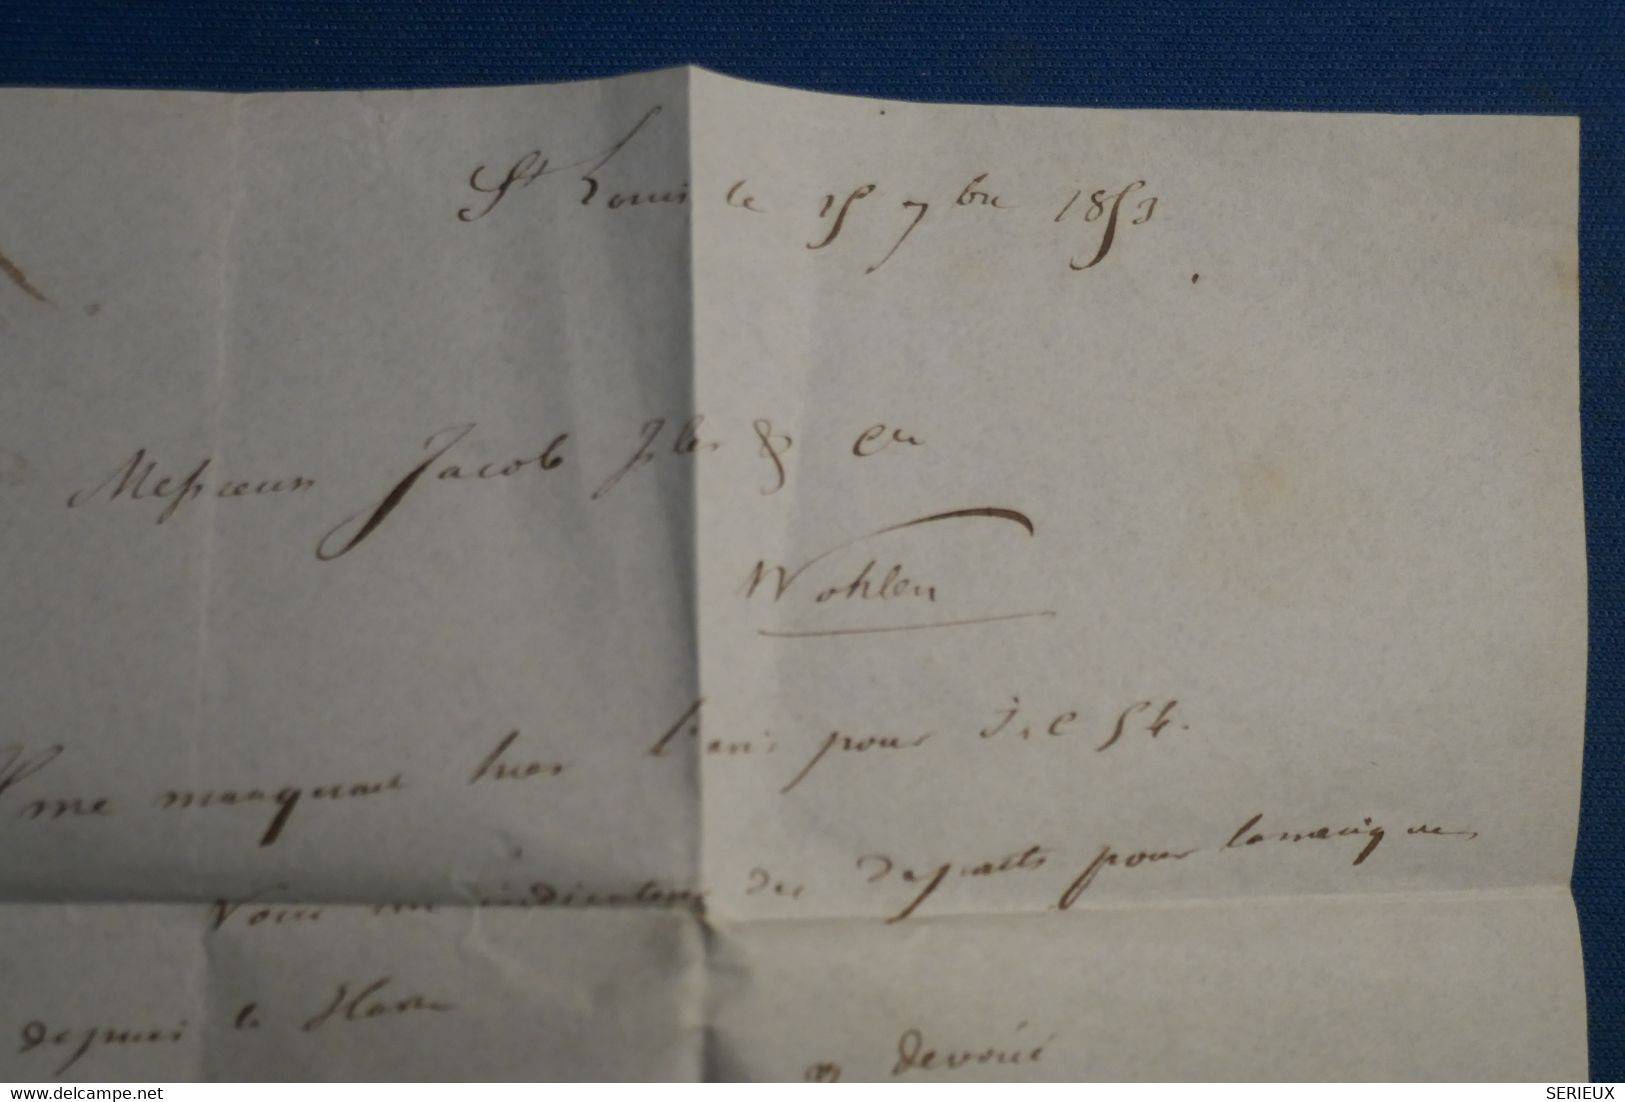 St Louis le 15 7bre 1853
Messieurs Jacob Isler & Cie
Wohlen
me manquait hier l'avis pour J.C 54.
Voici un indicateur des departs pour lamerique
depuis le Havre
devoué
www.delcampe.net
SERIEUX